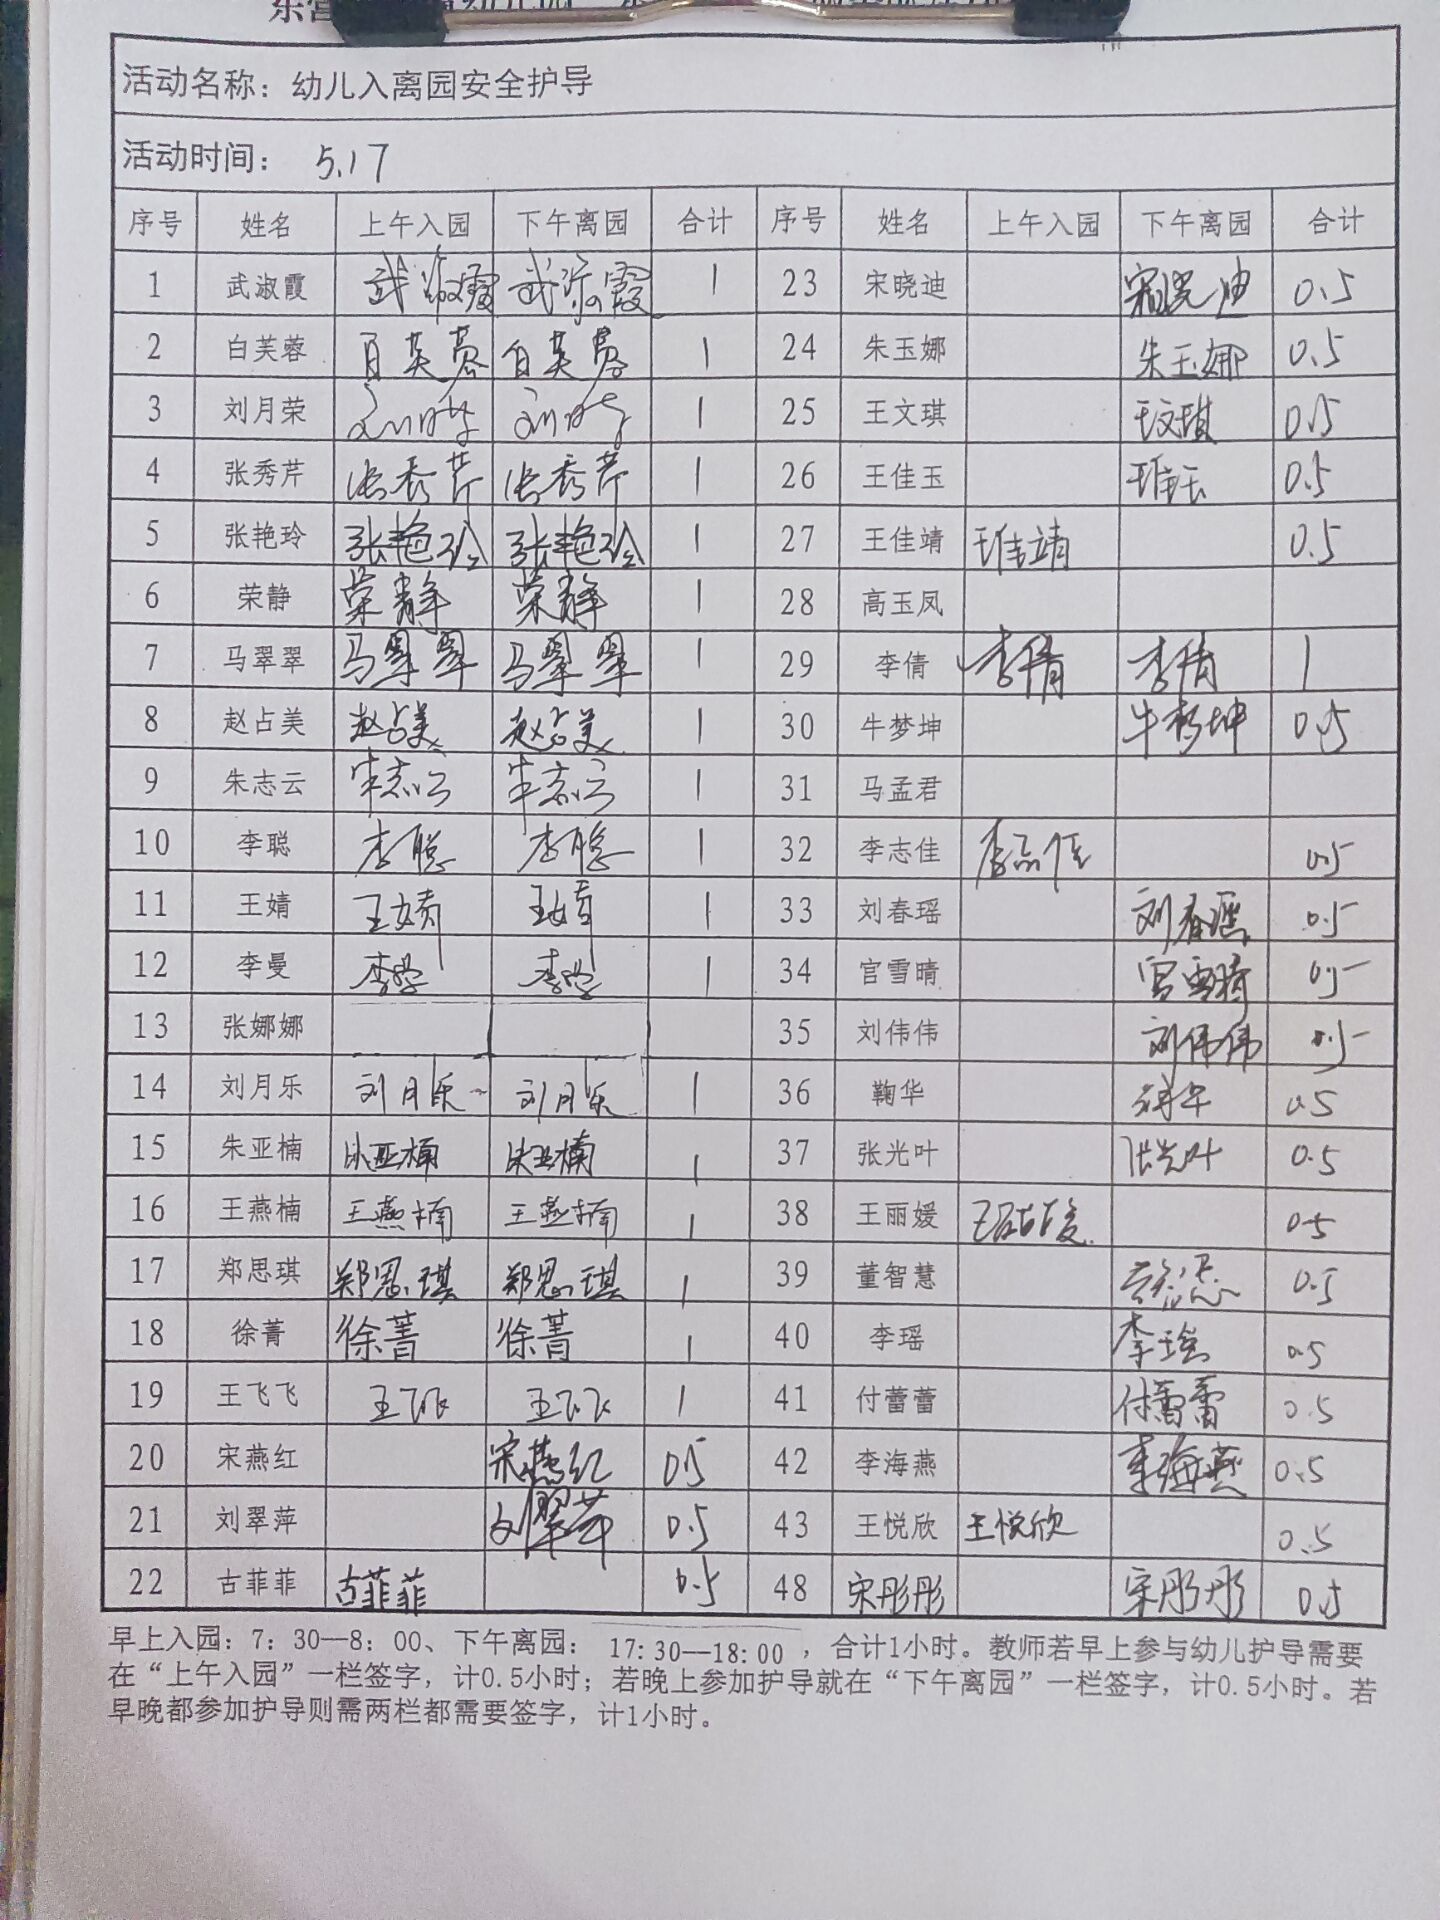 活动名称：幼儿入离园安全护导
活动时间： 5.17
序号 姓名 上午入园 下午离园 合计 序号 姓名 上午入园 下午离园 合计
1 武淑霞 武淑霞 武淑霞 1 23 宋晓迪 宋晓迪 0.5
2 白芙蓉 白芙蓉 白芙蓉 1 24 朱玉娜 朱玉娜 0.5
3 刘月荣 刘月荣 刘月荣 1 25 王文琪 王文琪 0.5
4 张秀芹 张秀芹 张秀芹 1 26 王佳玉 王佳玉 0.5
5 张艳玲 张艳玲 张艳玲 1 27 王佳靖 王佳靖 0.5
6 荣静 荣静 荣静 1 28 高玉凤
7 马翠翠 马翠翠 马翠翠 1 29 李倩 李倩 李倩 1
8 赵占美 赵占美 赵占美 1 30 牛梦坤 牛梦坤 0.5
9 朱志云 朱志云 朱志云 1 31 马孟君
10 李聪 李聪 李聪 1 32 李志佳 李志佳 0.5
11 王婧 王婧 王婧 1 33 刘春瑶 刘春瑶 0.5
12 李曼 李曼 李曼 1 34 官雪晴 官雪晴 0.5
13 张娜娜 35 刘伟伟 刘伟伟 0.5
14 刘月乐 刘月乐 刘月乐 1 36 鞠华 鞠华 0.5
15 朱亚楠 朱亚楠 朱亚楠 1 37 张光叶 张光叶 0.5
16 王燕楠 王燕楠 王燕楠 1 38 王丽媛 王丽媛 0.5
17 郑思琪 郑思琪 郑思琪 1 39 董智慧 董智慧 0.5
18 徐菁 徐菁 徐菁 1 40 李瑶 李瑶 0.5
19 王飞飞 王飞飞 王飞飞 1 41 付蕾蕾 付蕾蕾 0.5
20 宋燕红 宋燕红 0.5 42 李海燕 李海燕 0.5
21 刘翠萍 刘翠萍 0.5 43 王悦欣 王悦欣 0.5
22 古菲菲 古菲菲 0.5 48 宋彤彤 宋彤彤 0.5
早上入园：7：30—8：00、下午离园： 17:30—18:00 ，合计1小时。教师若早上参与幼儿护导需要
在“上午入园”一栏签字，计0.5小时；若晚上参加护导就在“下午离园”一栏签字，计0.5小时。若
早晚都参加护导则需两栏都需要签字，计1小时。